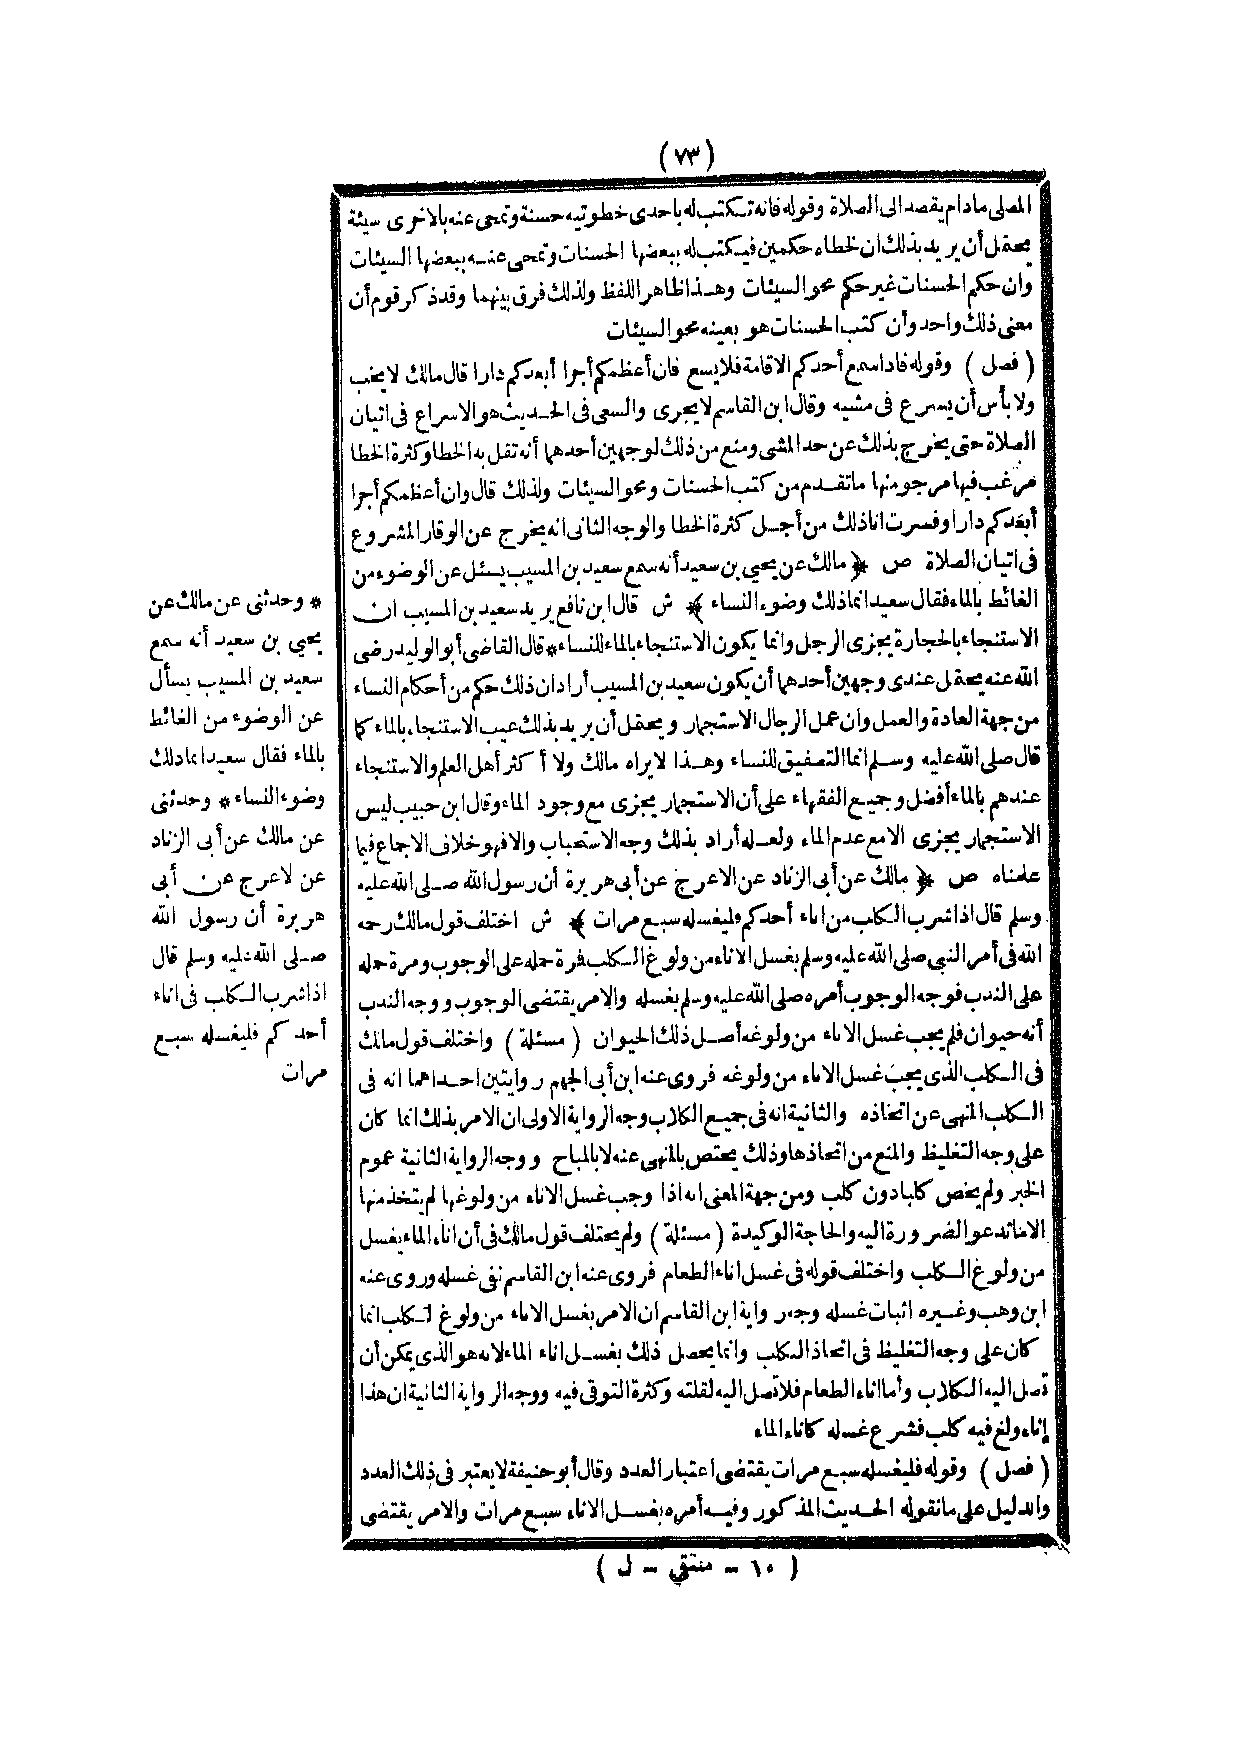 (٧٣)
المصلى مادام يقصد الى الصلاة وقوله فانه تكتب له باحدى خطوتيه حسنة وتمحى عنه بالاخرى سيئة
يحتمل أن يريد بذلك ان لخطاه حكمين فيكتب له ببعضها الحسنات وتمحى عنه ببعضها السيئات
وان حكم الحسنات غير حكم محو السيئات وهذا ظاهر اللفظ ولذلك فرق بينهما وقد ذكر قوم أن
معنى ذلك واحد وأن كتب الحسنات هو بعينه محو السيئات
( فصل ) وقوله فاذا سمع أحدكم الاقامة فلا يسع فان أعظمكم أجرا أبعدكم دارا قال مالك لا يخب
ولا بأس أن يسرع فى مشيه وقال ابن القاسم لا يجرى والسعى فى الحديث هو الاسراع فى اتيان
الصلاة حتى يخرج بذلك عن حد المشى ومنع من ذلك لوجهين أحدهما أنه تقل به الخطا وكثرة الخطا
مرغب فيها مرجو منها ما تقدم من كتب الحسنات ومحو السيئات ولذلك قال وان أعظمكم أجرا
أبعدكم دارا وفسرت انا ذلك من أجل كثرة الخطا والوجه الثانى انه يخرج عن الوقار المشروع
فى اتيان الصلاة ص ﴿ مالك عن يحيى بن سعيد أنه سمع سعيد بن المسيب يسئل عن الوضوء من
الغائط بالماء فقال سعيد انما ذلك وضوء النساء ﴾ ش قال ابن نافع يريد سعيد بن المسيب ان
الاستنجاء بالحجارة يجزى الرجل وانما يكون الاستنجاء بالماء للنساء * قال القاضى أبو الوليد رضى
الله عنه يحتمل عندى وجهين أحدهما أن يكون سعيد بن المسيب أراد ان ذلك حكم من أحكام النساء
من جهة العادة والعمل وان عمل الرجال الاستجمار ويحتمل أن يريد بذلك عيب الاستنجاء بالماء كما
قال صلى الله عليه وسلم انما التصفيق للنساء وهذا لا يراه مالك ولا أكثر أهل العلم والاستنجاء
عندهم بالماء أفضل وجميع الفقهاء على أن الاستجمار يجزى مع وجود الماء وقال ابن حبيب ليس
الاستجمار يجزى الا مع عدم الماء ولعله أراد بذلك وجه الاستحباب والا فهو خلاف الاجماع فيما
علمناه ص ﴿ مالك عن أبى الزناد عن الاعرج عن أبى هريرة أن رسول الله صلى الله عليه
وسلم قال اذا شرب الكلب من اناء أحدكم فليغسله سبع مرات ﴾ ش اختلف قول مالك رحمه
الله فى أمر النبى صلى الله عليه وسلم بغسل الاناء من ولوغ الكلب فمرة حمله على الوجوب ومرة حمله
على الندب فوجه الوجوب أمره صلى الله عليه وسلم بغسله والامر يقتضى الوجوب ووجه الندب
أنه حيوان فلم يجب غسل الاناء من ولوغه أصل ذلك الحيوان ( مسئلة ) واختلف قول مالك
فى الكلب الذى يجب غسل الاناء من ولوغه فروى عنه ابن أبى الجهم روايتين احداهما انه فى
الكلب المنهى عن اتخاذه والثانية انه فى جميع الكلاب وجه الرواية الاولى ان الامر بذلك انما كان
على وجه التغليظ والمنع من اتخاذها وذلك يختص بالمنهى عنه لا بالمباح ووجه الرواية الثانية عموم
الخبر ولم يخص كلبا دون كلب ومن جهة المعنى انه اذا وجب غسل الاناء من ولوغها لم يتخذ منها
الا ما تدعو الضرورة اليه والحاجة الوكيدة ( مسئلة ) ولم يختلف قول مالك فى أن اناء الماء يغسل
من ولوغ الكلب واختلف قوله فى غسل اناء الطعام فروى عنه ابن القاسم نفى غسله وروى عنه
ابن وهب وغيره اثبات غسله وجه رواية ابن القاسم ان الامر بغسل الاناء من ولوغ الكلب انما
كان على وجه التغليظ فى اتخاذ الكلب وانما يحصل ذلك بغسل اناء الماء لانه هو الذى يمكن أن
تصل اليه الكلاب وأما اناء الطعام فلا تصل اليه لقلته وكثرة التوقى فيه ووجه الرواية الثانية ان هذا
إناء ولغ فيه كلب فشرع غسله كاناء الماء
( فصل ) وقوله فليغسله سبع مرات يقتضى اعتبار العدد وقال أبو حنيفة لا يعتبر فى ذلك العدد
والدليل على ما نقوله الحديث المذكور وفيه أمره بغسل الاناء سبع مرات والامر يقتضى
* وحدثنى عن مالك عن
يحيى بن سعيد أنه سمع
سعيد بن المسيب يسأل
عن الوضوء من الغائط
بالماء فقال سعيد انما ذلك
وضوء النساء * وحدثنى
عن مالك عن أبى الزناد
عن لاعرج عن أبى
هريرة أن رسول الله
صلى الله عليه وسلم قال
اذا شرب الكلب فى اناء
أحدكم فليغسله سبع
مرات
( ١٠ - منتقى - ل )